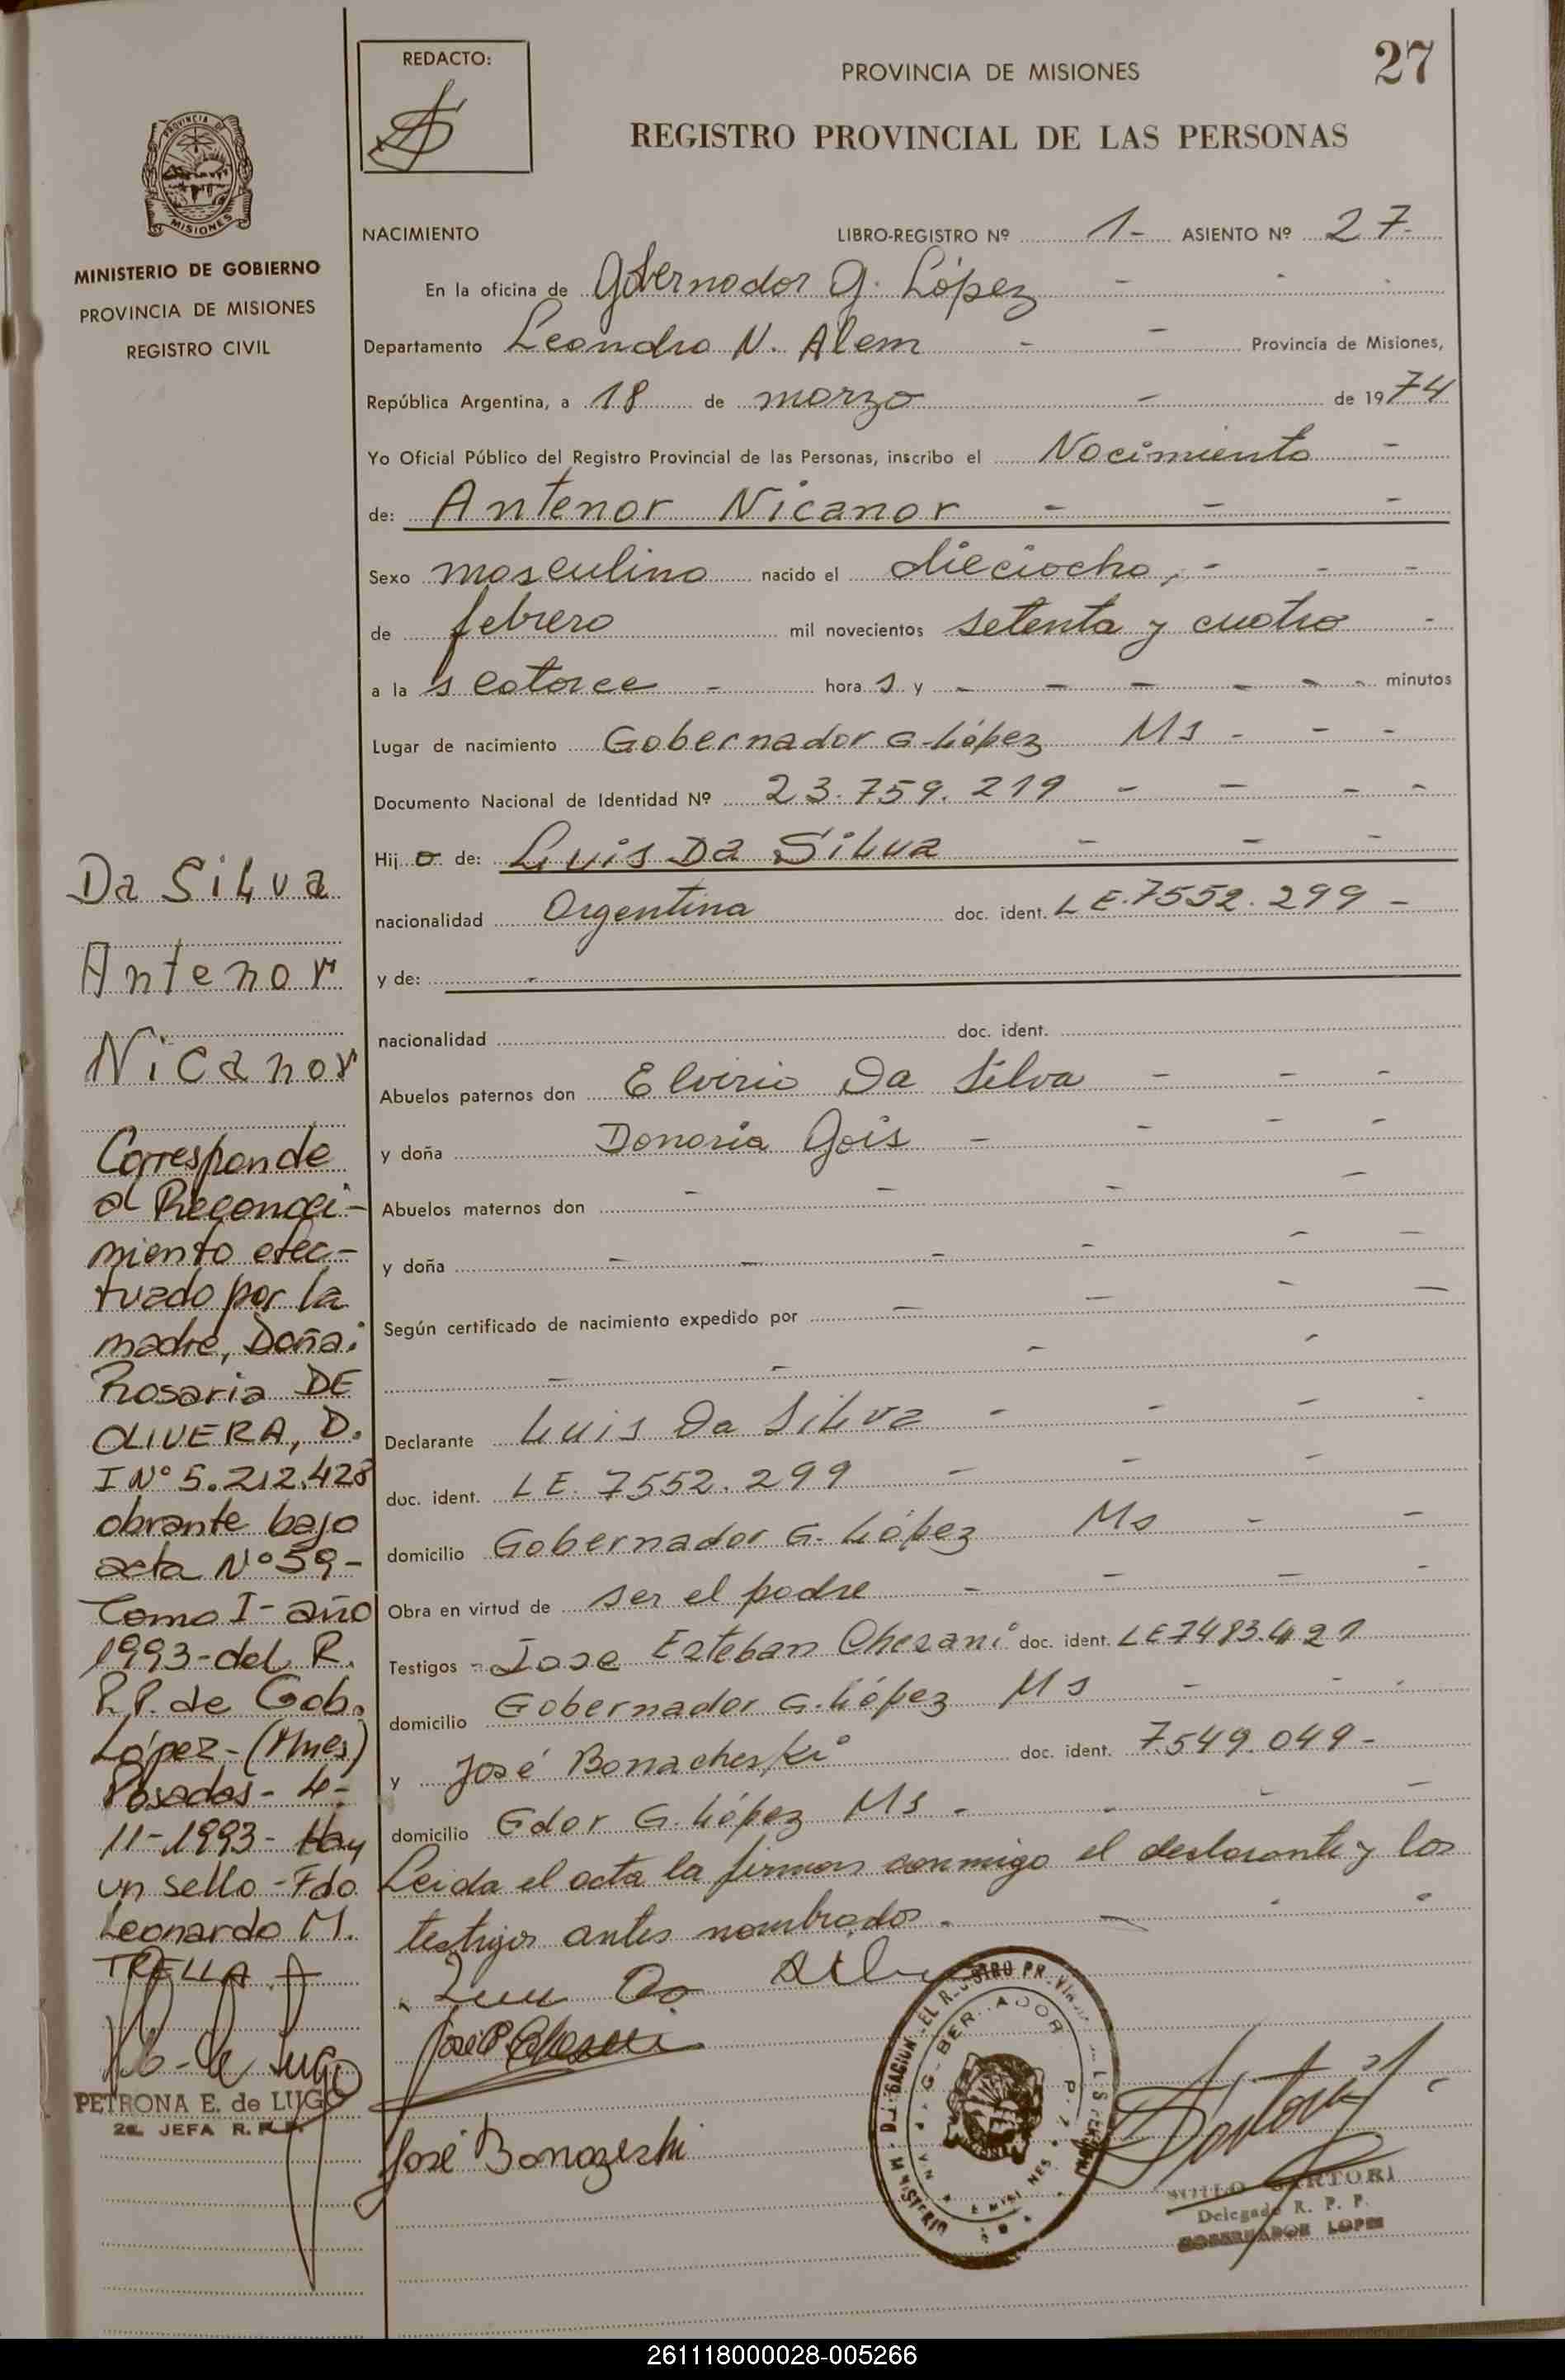 REDACTO:
PROVINCIA DE MISIONES
27
REGISTRO PROVINCIAL DE LAS PERSONAS
PROVINCIA DE
MISIONES
MINISTERIO DE GOBIERNO
PROVINCIA DE MISIONES
REGISTRO CIVIL
NACIMIENTO LIBRO-REGISTRO Nº 1- ASIENTO Nº 27-
En la oficina de Gobernador G. López -
Departamento Leandro N. Alem - - Provincia de Misiones,
República Argentina, a 18 de marzo - de 1974
Yo Oficial Público del Registro Provincial de las Personas, inscribo el Nacimiento -
de: Antenor Nicanor - - -
Sexo masculino nacido el dieciocho, - - -
de febrero mil novecientos setenta y cuatro -
a las catorce - horas y - - - - - - minutos
Lugar de nacimiento Gobernador G. López Ms - - -
Documento Nacional de Identidad Nº 23.759.219 - - - -
Hijo de: Luis Da Silva - - -
nacionalidad Argentina doc. ident. LE.7552.299 -
y de: -
nacionalidad doc. ident.
Abuelos paternos don Elvirio Da Silva - - -
y doña Donoria Gois - - - -
Abuelos maternos don - - - -
y doña - - - - - -
Según certificado de nacimiento expedido por - - - -
- - - -
Declarante Luis Da Silva - - - -
doc. ident. LE. 7552.299 - - -
domicilio Gobernador G. López Ms - -
Obra en virtud de ser el padre - - - -
Testigos - Jose Esteban Chesani doc. ident. LE7483.421
domicilio Gobernador G. López Ms - - -
y José Bonacheski doc. ident. 7.549.049-
domicilio Gdor G. López Ms - - - -
Leida el acta la firman conmigo el declarante y los
testigos antes nombrados. -
Luis Da Silva
José Bonazeski
Da Silva
Antenor
Nicanor
Corresponde
al Reconoci-
miento efec-
tuado por la
madre, Doña:
Rosaria DE
OLIVERA, D.
I Nº 5.212.428
obrante bajo
acta Nº 59-
Tomo I- año
1993-del R.
P.P. de Gob.
López-(Mnes)
Posadas- 4-
11-1993- Hay
un sello -Fdo
Leonardo M.
TRELLA
PETRONA E. de LUGO
2a. JEFA R.P.P.
SARTORI
Delegado R. P. P.
GOBERNADOR LOPEZ
261118000028-005266